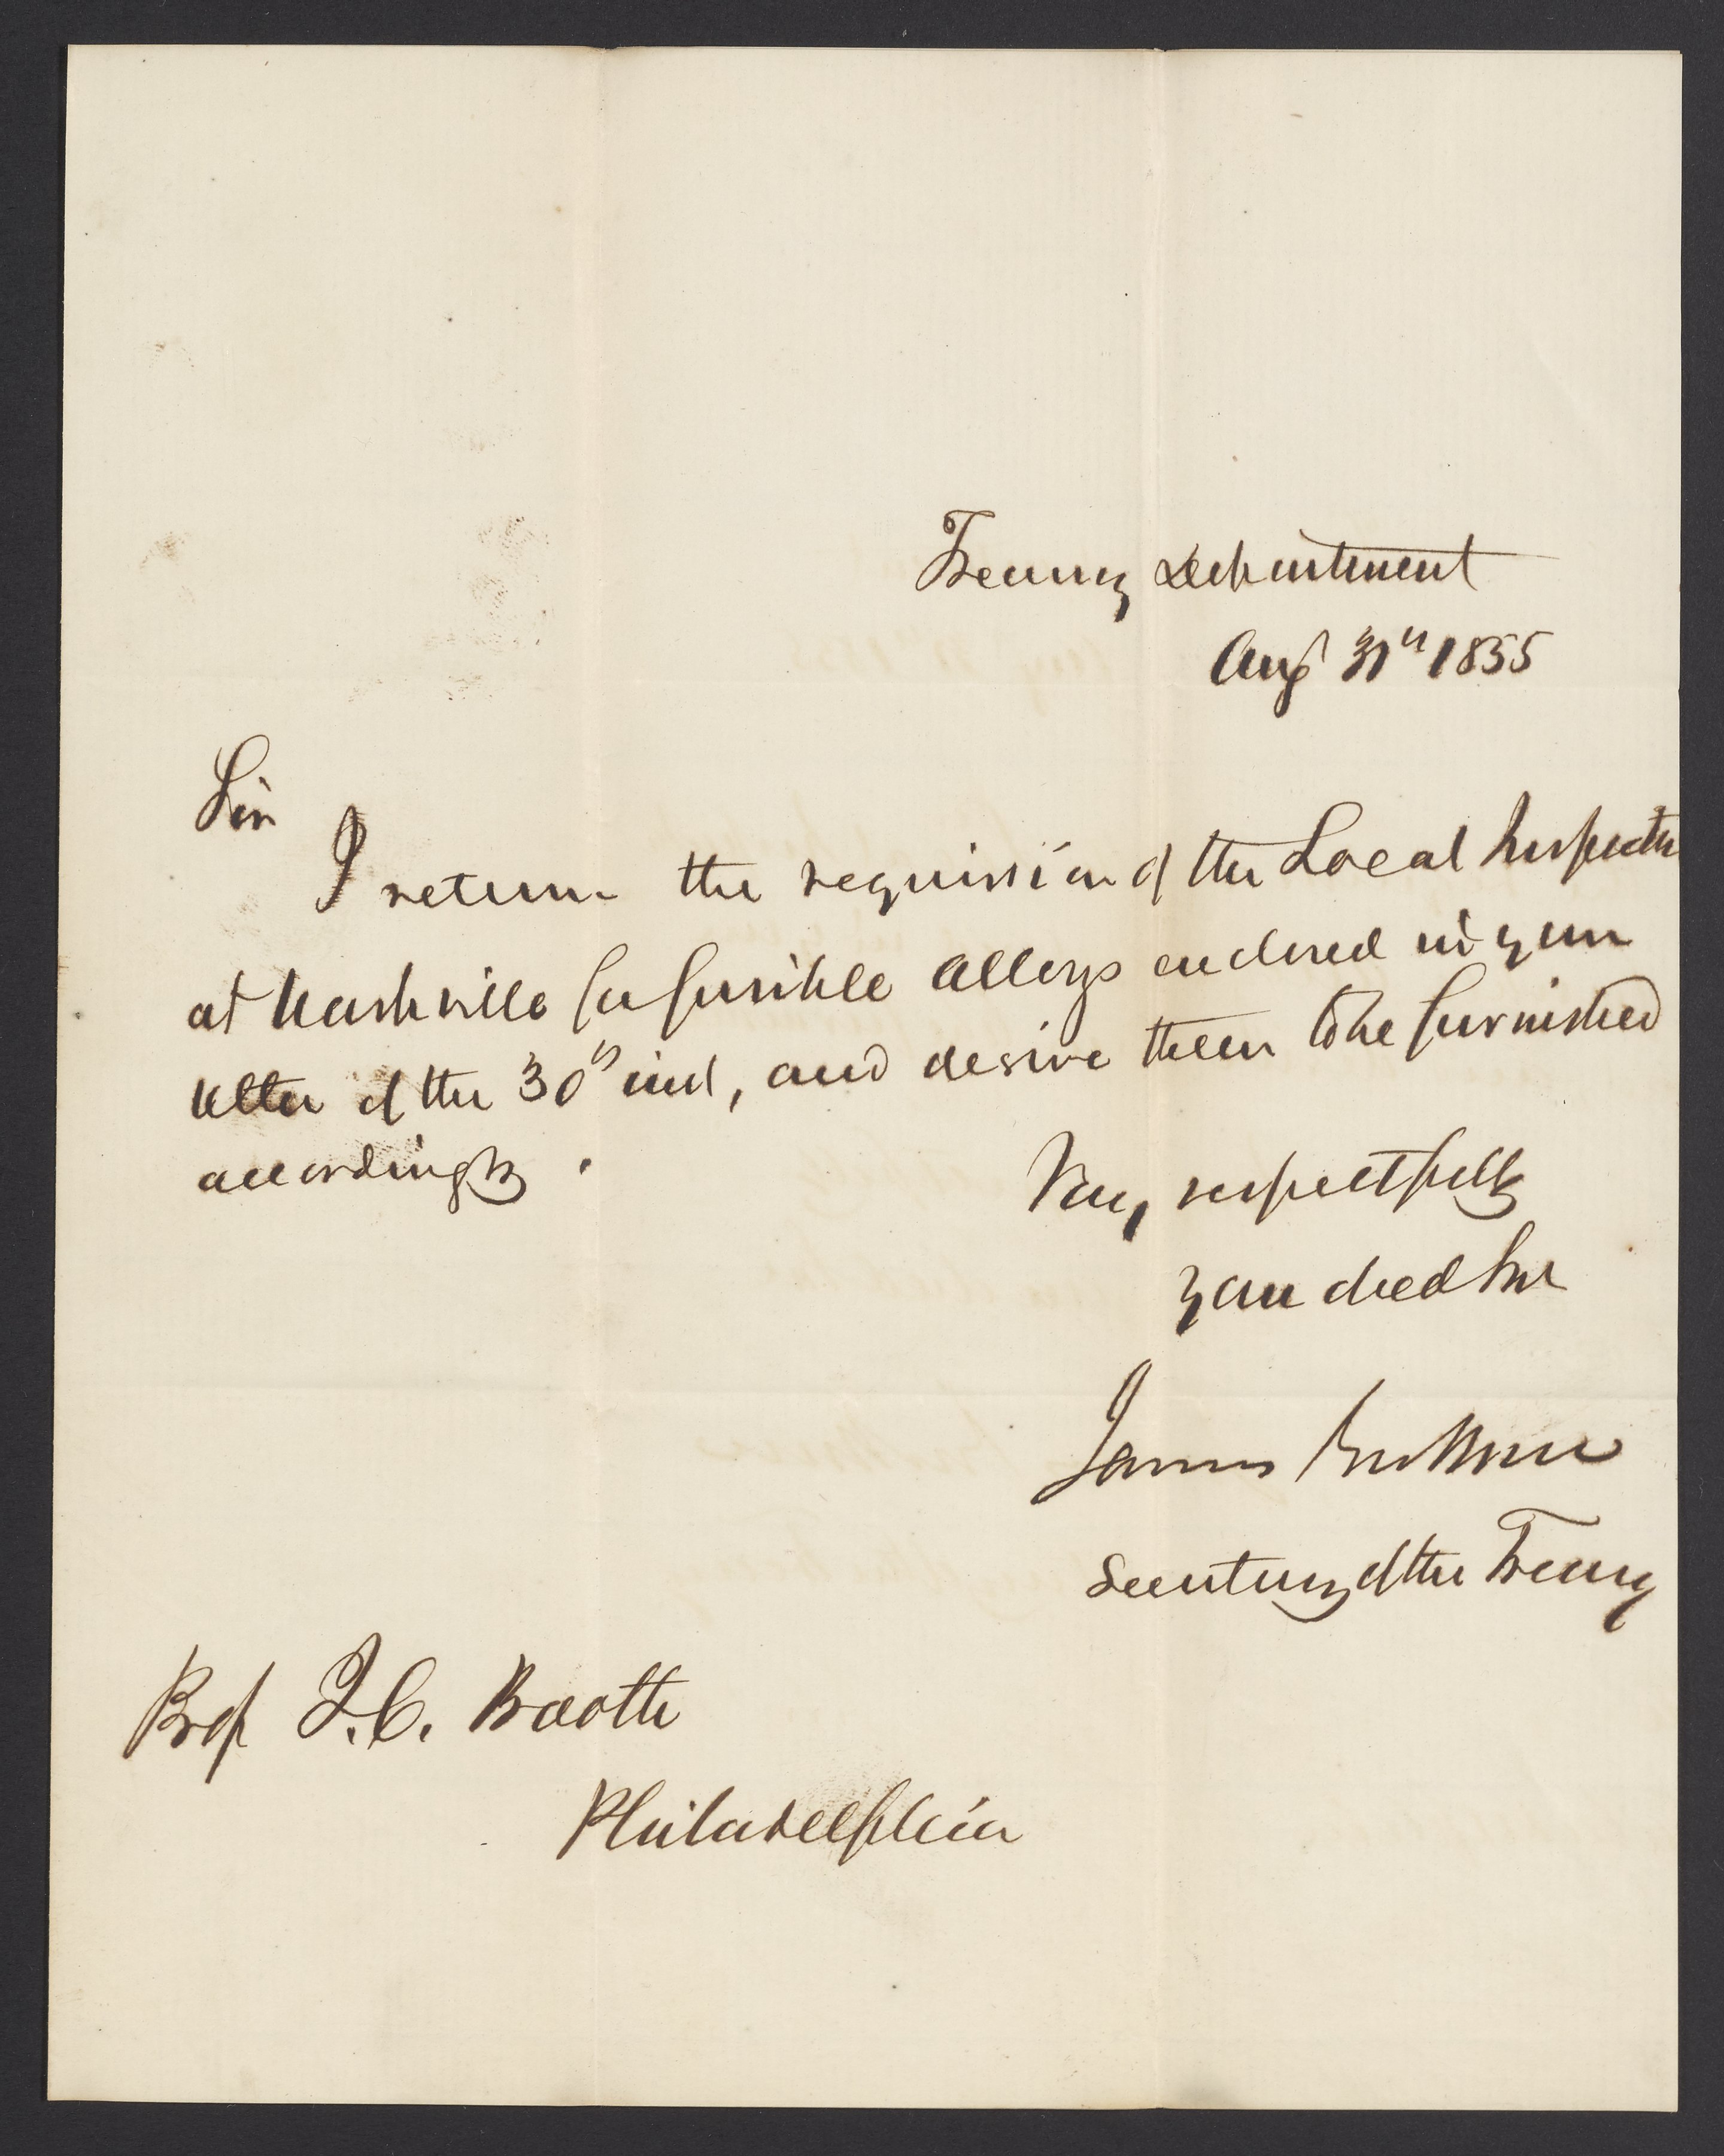 Treasury Department
Augt 31st 1855
Sir
I return the requisition of the Local Inspectors
at Nashville for fusible alloys enclosed in your
letter of the 30th inst, and desire them to be furnished
accordingly.
Very respectfully
your obed Svt
James Guthrie
Secretary of the Treasury
Prof J. C. Booth
Philadelphia